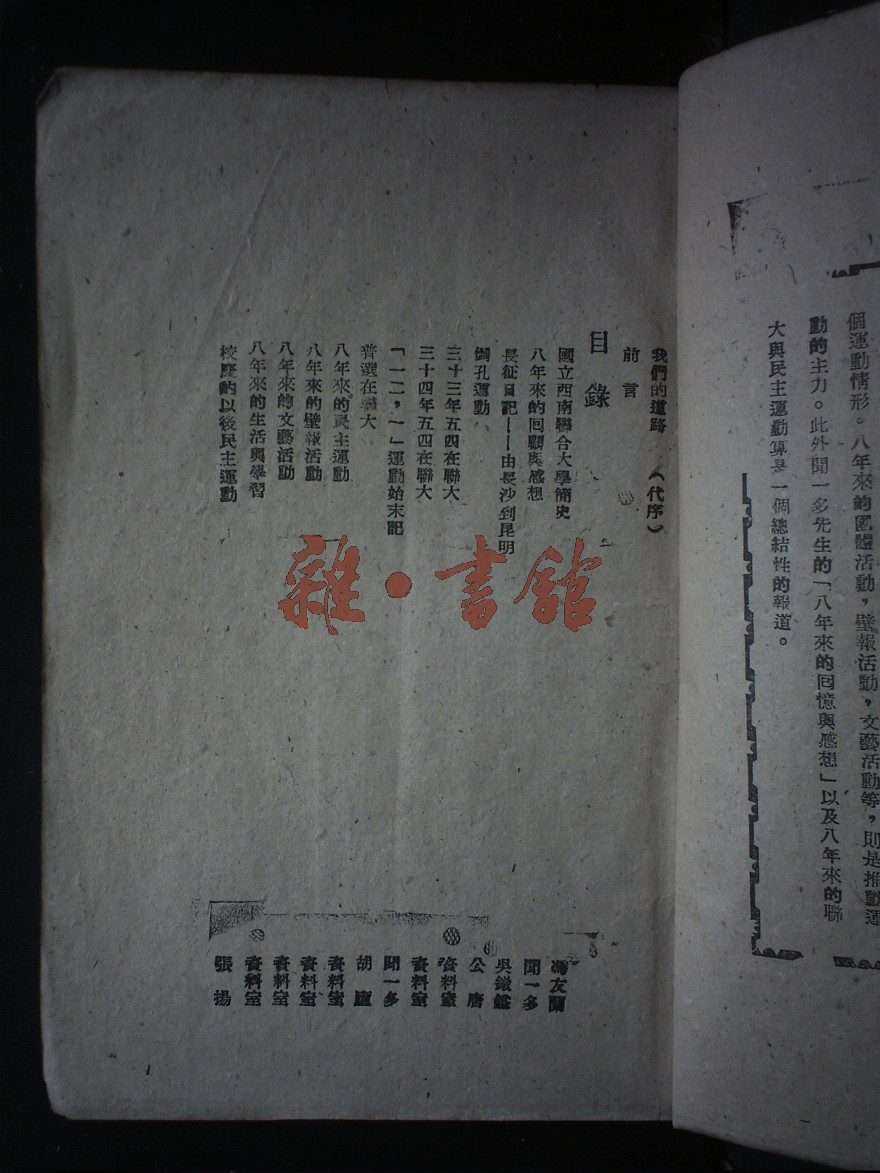 個運動情形。八年來的團體活動，壁報活動，文藝活動等，則是推動運
動的主力。此外聞一多先生的「八年來的回憶與感想」以及八年來的聯
大與民主運動算是一個總結性的報道。
我們的道路（代序）
前言
目錄
國立西南聯合大學簡史 馮友蘭
八年來的回顧與感想 聞一多
長征日記——由長沙到昆明 吳徵鎰
倒孔運動 公唐
三十三年五四在聯大 資料室
三十四年五四在聯大 資料室
「一二，一」運動始末記 聞一多
普選在聯大 胡廬
八年來的民主運動 資料室
八年來的壁報活動 資料室
八年來的文藝活動 資料室
八年來的生活與學習 資料室
校慶的以後民主運動 張揚
雜·書館